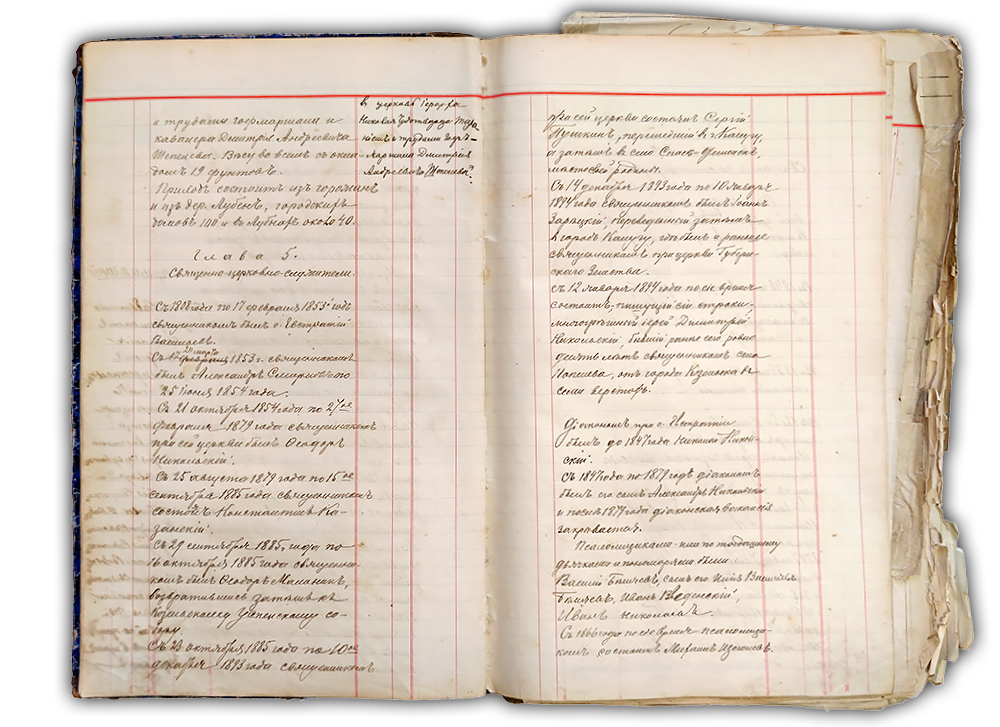 и трудами гофмаршала и
кавалера Дмитрія Андреевича
Шепелева. Вѣсу во всемъ съ окла
домъ 19 фунтовъ.
Приходъ состоитъ изъ горожанъ
и изъ дер. Лубенъ, городскихъ
домовъ 100 и въ Лубнахъ около 40.
Глава 5.
Священно-церковно-служители.
Съ 1808 года по 17 февраля 1853 года
священникомъ былъ о. Евстратій
Васильевъ.
20 марта
Съ 17 февраля 1853 г. священникомъ
былъ Александръ Смирновъ по
25 іюня 1854 года.
Съ 21 октября 1854 года по 27ое
февраля 1879 года священникомъ
при сей церкви былъ Ѳеодоръ
Никольскій.
Съ 25 августа 1879 года по 15ое
сентября 1885 года священникомъ
состоялъ Константинъ Ка-
занскій.
Съ 29 сентября 1885 года по
16 октября 1885 года священни-
комъ былъ Ѳеодоръ
возвратившійся затѣмъ къ
Козельскому Успенскому со-
бору.
Съ 23 октября 1885 года по 10ое
декабря 1893 года священникомъ
въ церковь
Николая Чудотворца
трудами
Маршала Дмитрія
Андреевича Шепелева".
при сей церкви состоялъ Сергій
Пушкинъ, перешедшій въ Калугу,
а затѣмъ въ село Спасъ-
мѣстовой родиной.
Съ 14 декабря 1893 года по 10 января
1894 года священникомъ былъ Іоаннъ
Зарацкій переведенный затѣмъ
въ городъ Калугу, гдѣ былъ и раньше
священникомъ при церкви Губерн-
скаго Земства.
Съ 12 января 1894 года по сіе время
состоитъ, пишущій сіи строки,
многогрѣшный іерей Димитрій
Никольскій, бывшій ранѣе сего ровно
десять лѣтъ священникомъ села
отъ города Козельска въ
семи верстахъ.
Діакономъ при о. Евстратіи
былъ до 1847 года Николай Николь-
скій.
Съ 1847 года по 1879 годъ діакономъ
былъ его сынъ Александръ Никольскій
и послѣ 1879 года діаконская вакансія
закрывается.
Псаломщиками или по тогдашнему
дьячками и пономарями были
Василій сынъ его
Иванъ Введенскій,
Иванъ Никольскій.
Съ 1866 года по сіе время псаломщи-
комъ состоитъ Михаилъ